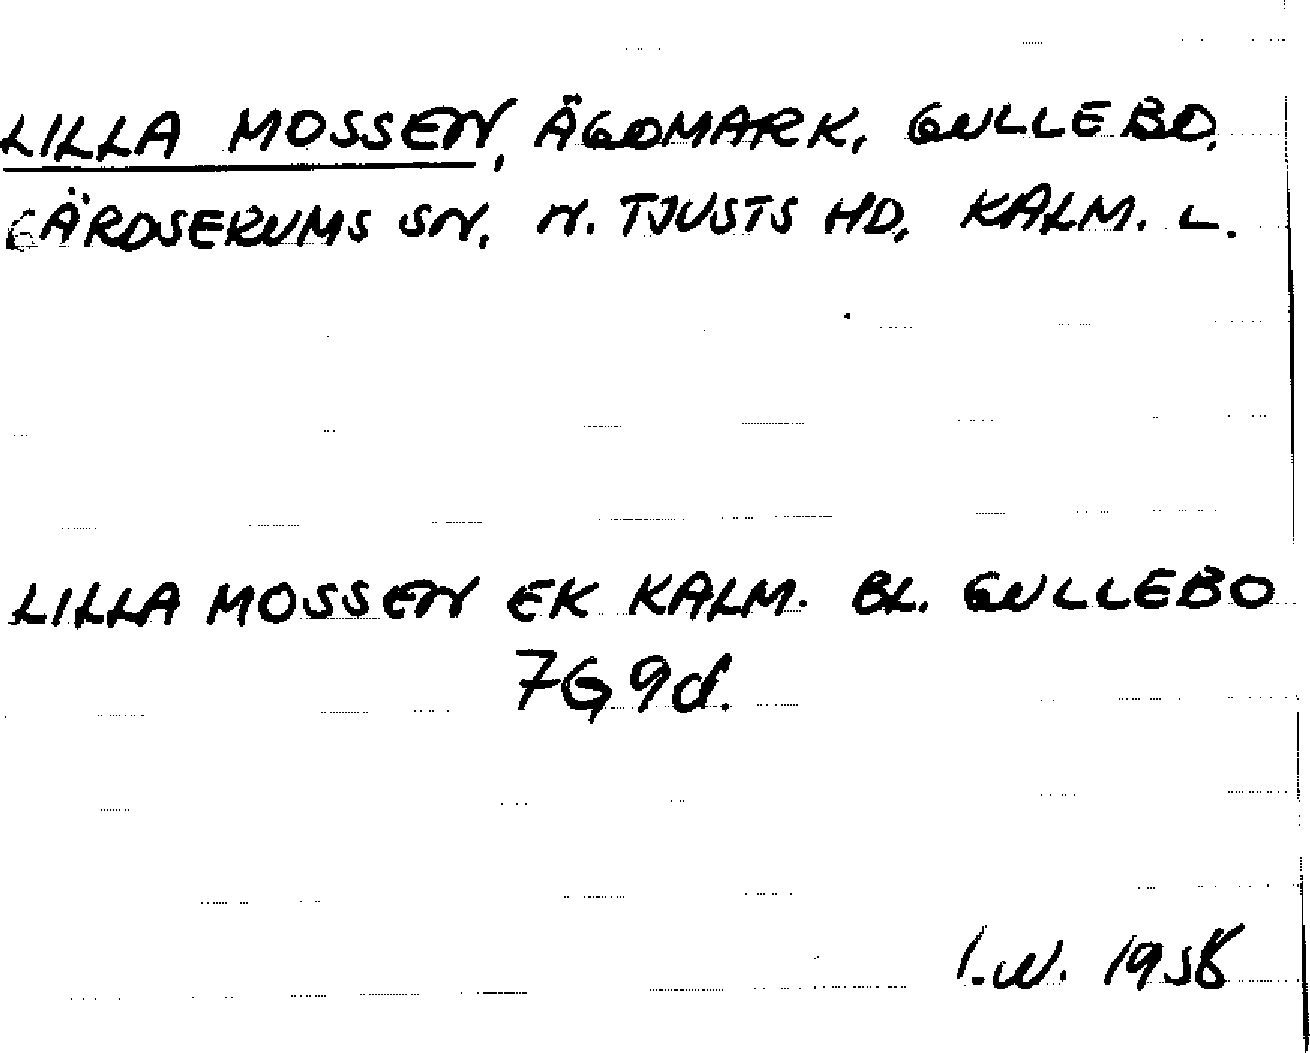 LILLA MOSSEN, ÄGOMARK, GULLEBO,
GÄRDSERUMS SN, N. TJUSTS HD, KALM. L.
LILLA MOSSEN EK KALM. BL. GULLEBO
7G9d.
I.W. 1958